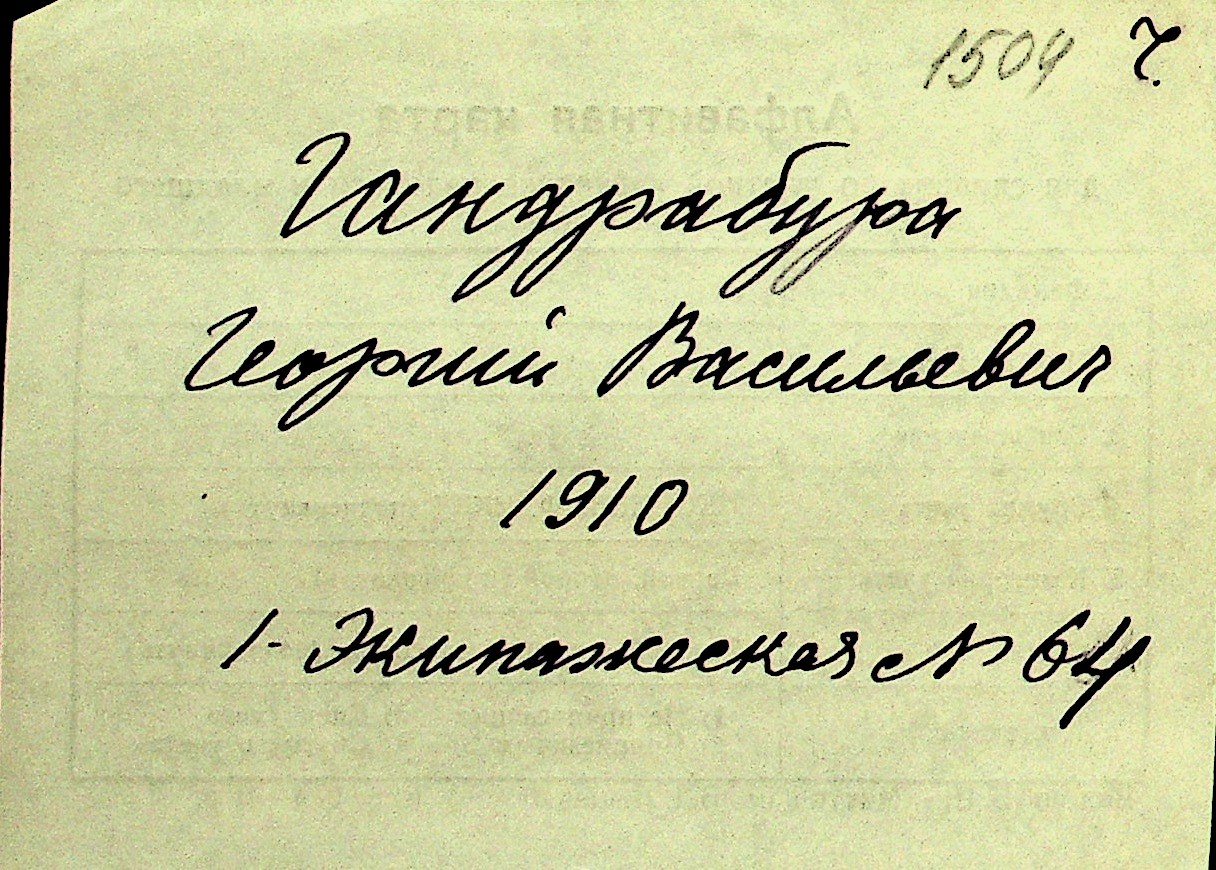 1504 Ч.
Гандрабура
Георгий Васильевич
1910
1-Экипажеская № 64